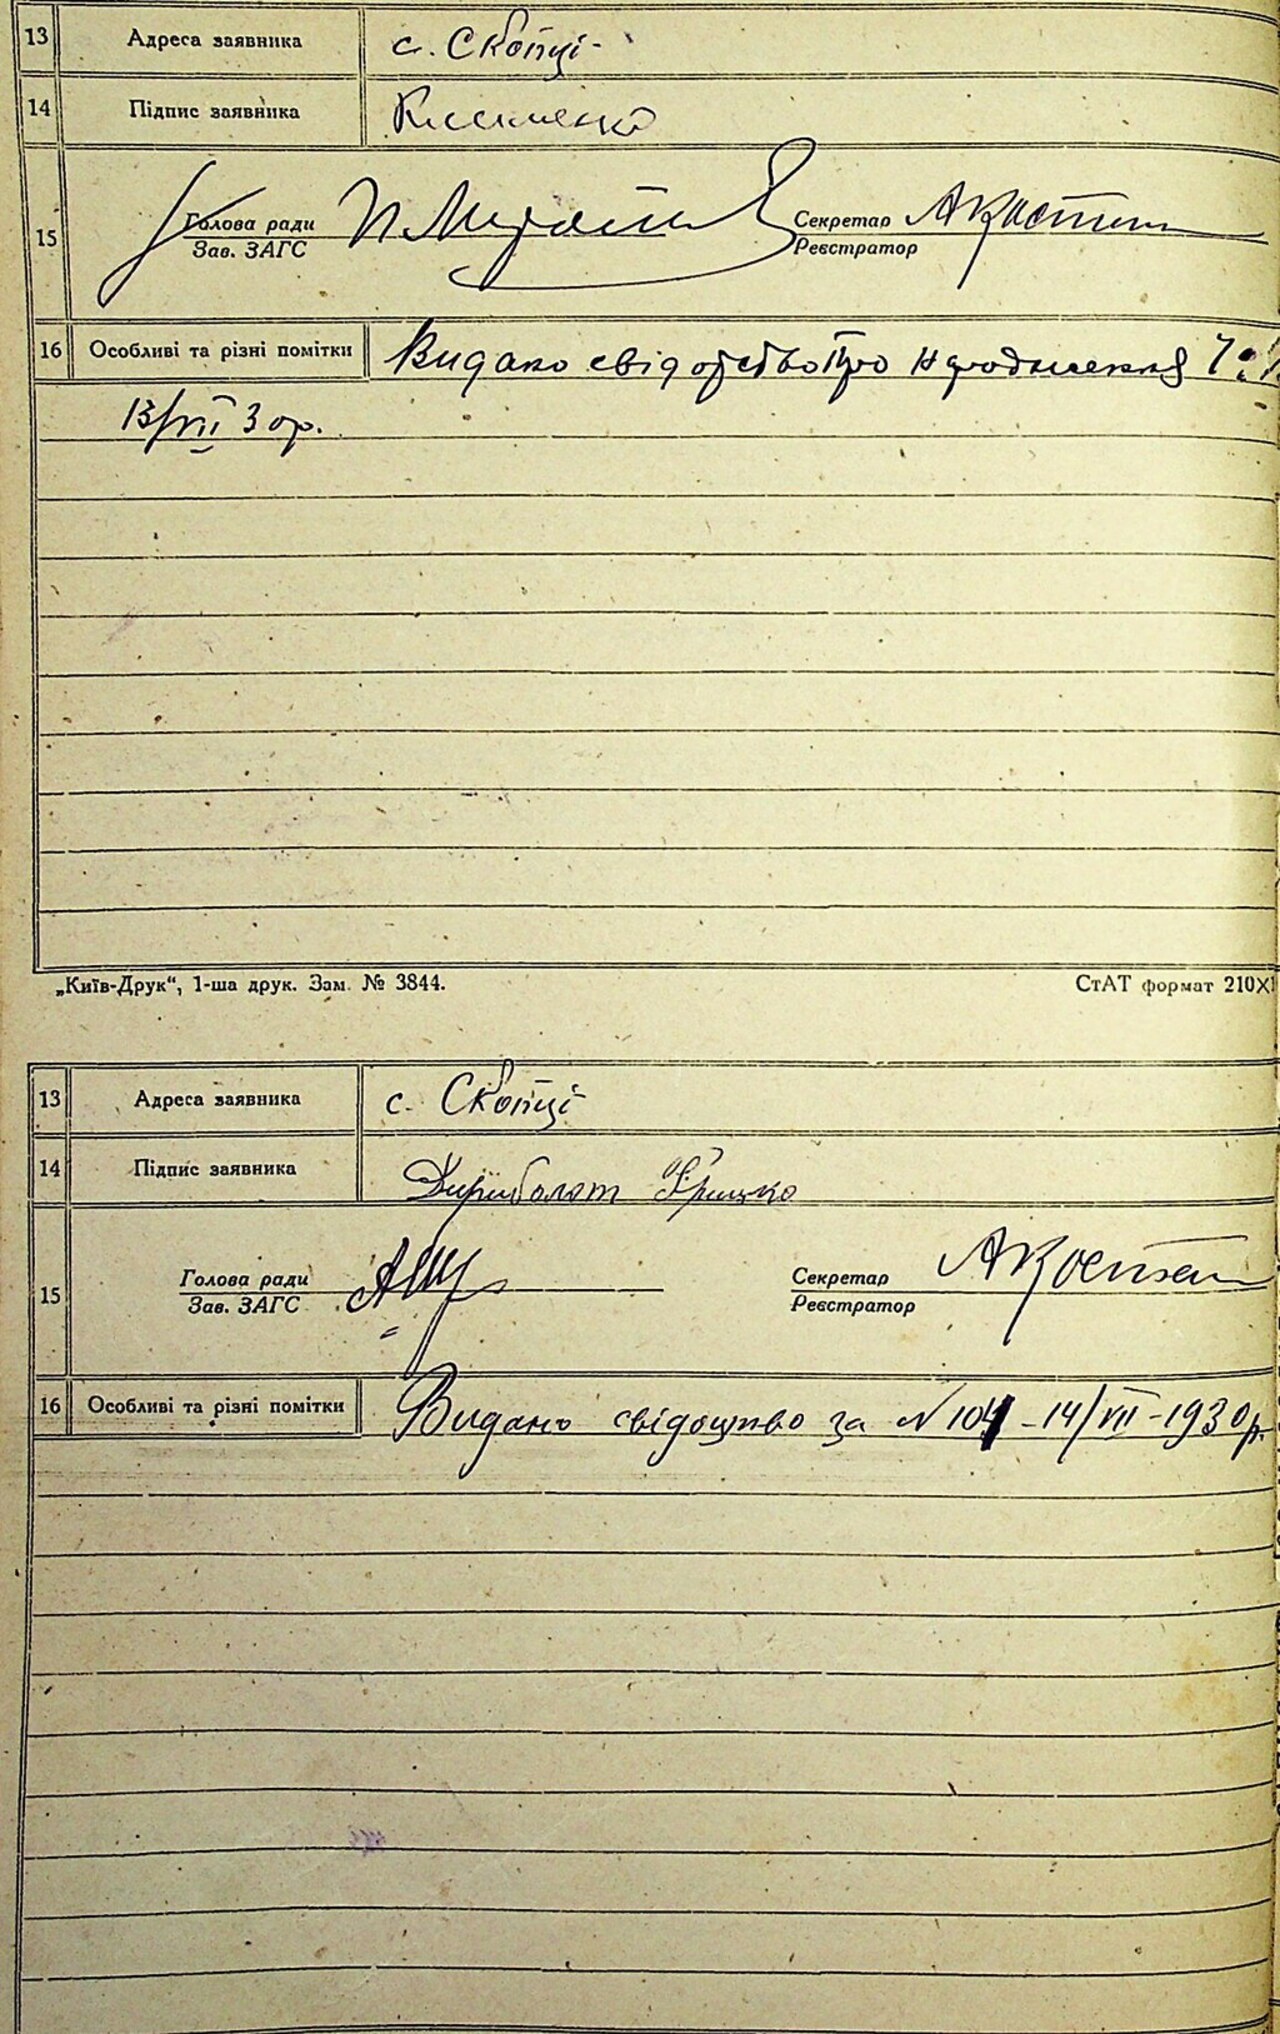 13 Адреса заявника с. Скопці
14 Підпис заявника Клименко
15 Голова ради Секретар АКостен
Зав. ЗАГС Реєстратор
16 Особливі та різні помітки Видано свідоцтво про народження
13/VII 30р.
„Київ-Друк“, 1-ша друк. Зам. № 3844. СтАТ формат 210X1
13 Адреса заявника с. Скопці
14 Підпис заявника Дириболот Грицко
15 Голова ради Секретар АКостен
Зав. ЗАГС Реєстратор
16 Особливі та різні помітки Видано свідоцтво за N 104 - 14/VII - 1930р.